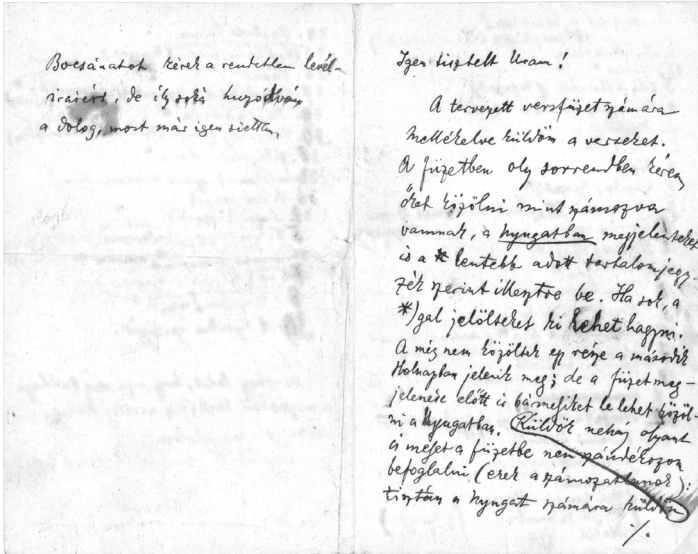 Bocsánatot kérek a rendetlen levél-
irásért, de ily soká huzódván
a dolog, most már igen siettem.
Igen tisztelt Uram!
A tervezett versfüzet számára
mellékelve küldöm a verseket.
A füzetben oly sorrendben kérem
őket közölni mint számozva
vannak, a Nyugatban megjelenteket
is a * lentebb adott tartalomjegy-
zék szerint illesztve be. Ha sok, a
*)gal jelölteket ki lehet hagyni.
A még nem közöltek egy része a második
Holnapban jelenik meg; de a füzet meg-
jelenése előtt is bármelyiket le lehet közöl-
ni a Nyugatban. Küldök nehány olyant
is melyet a füzetbe nem szándékozom
befoglalni (ezek a számozatlanok):
tisztán a Nyugat számára küldöm
./.